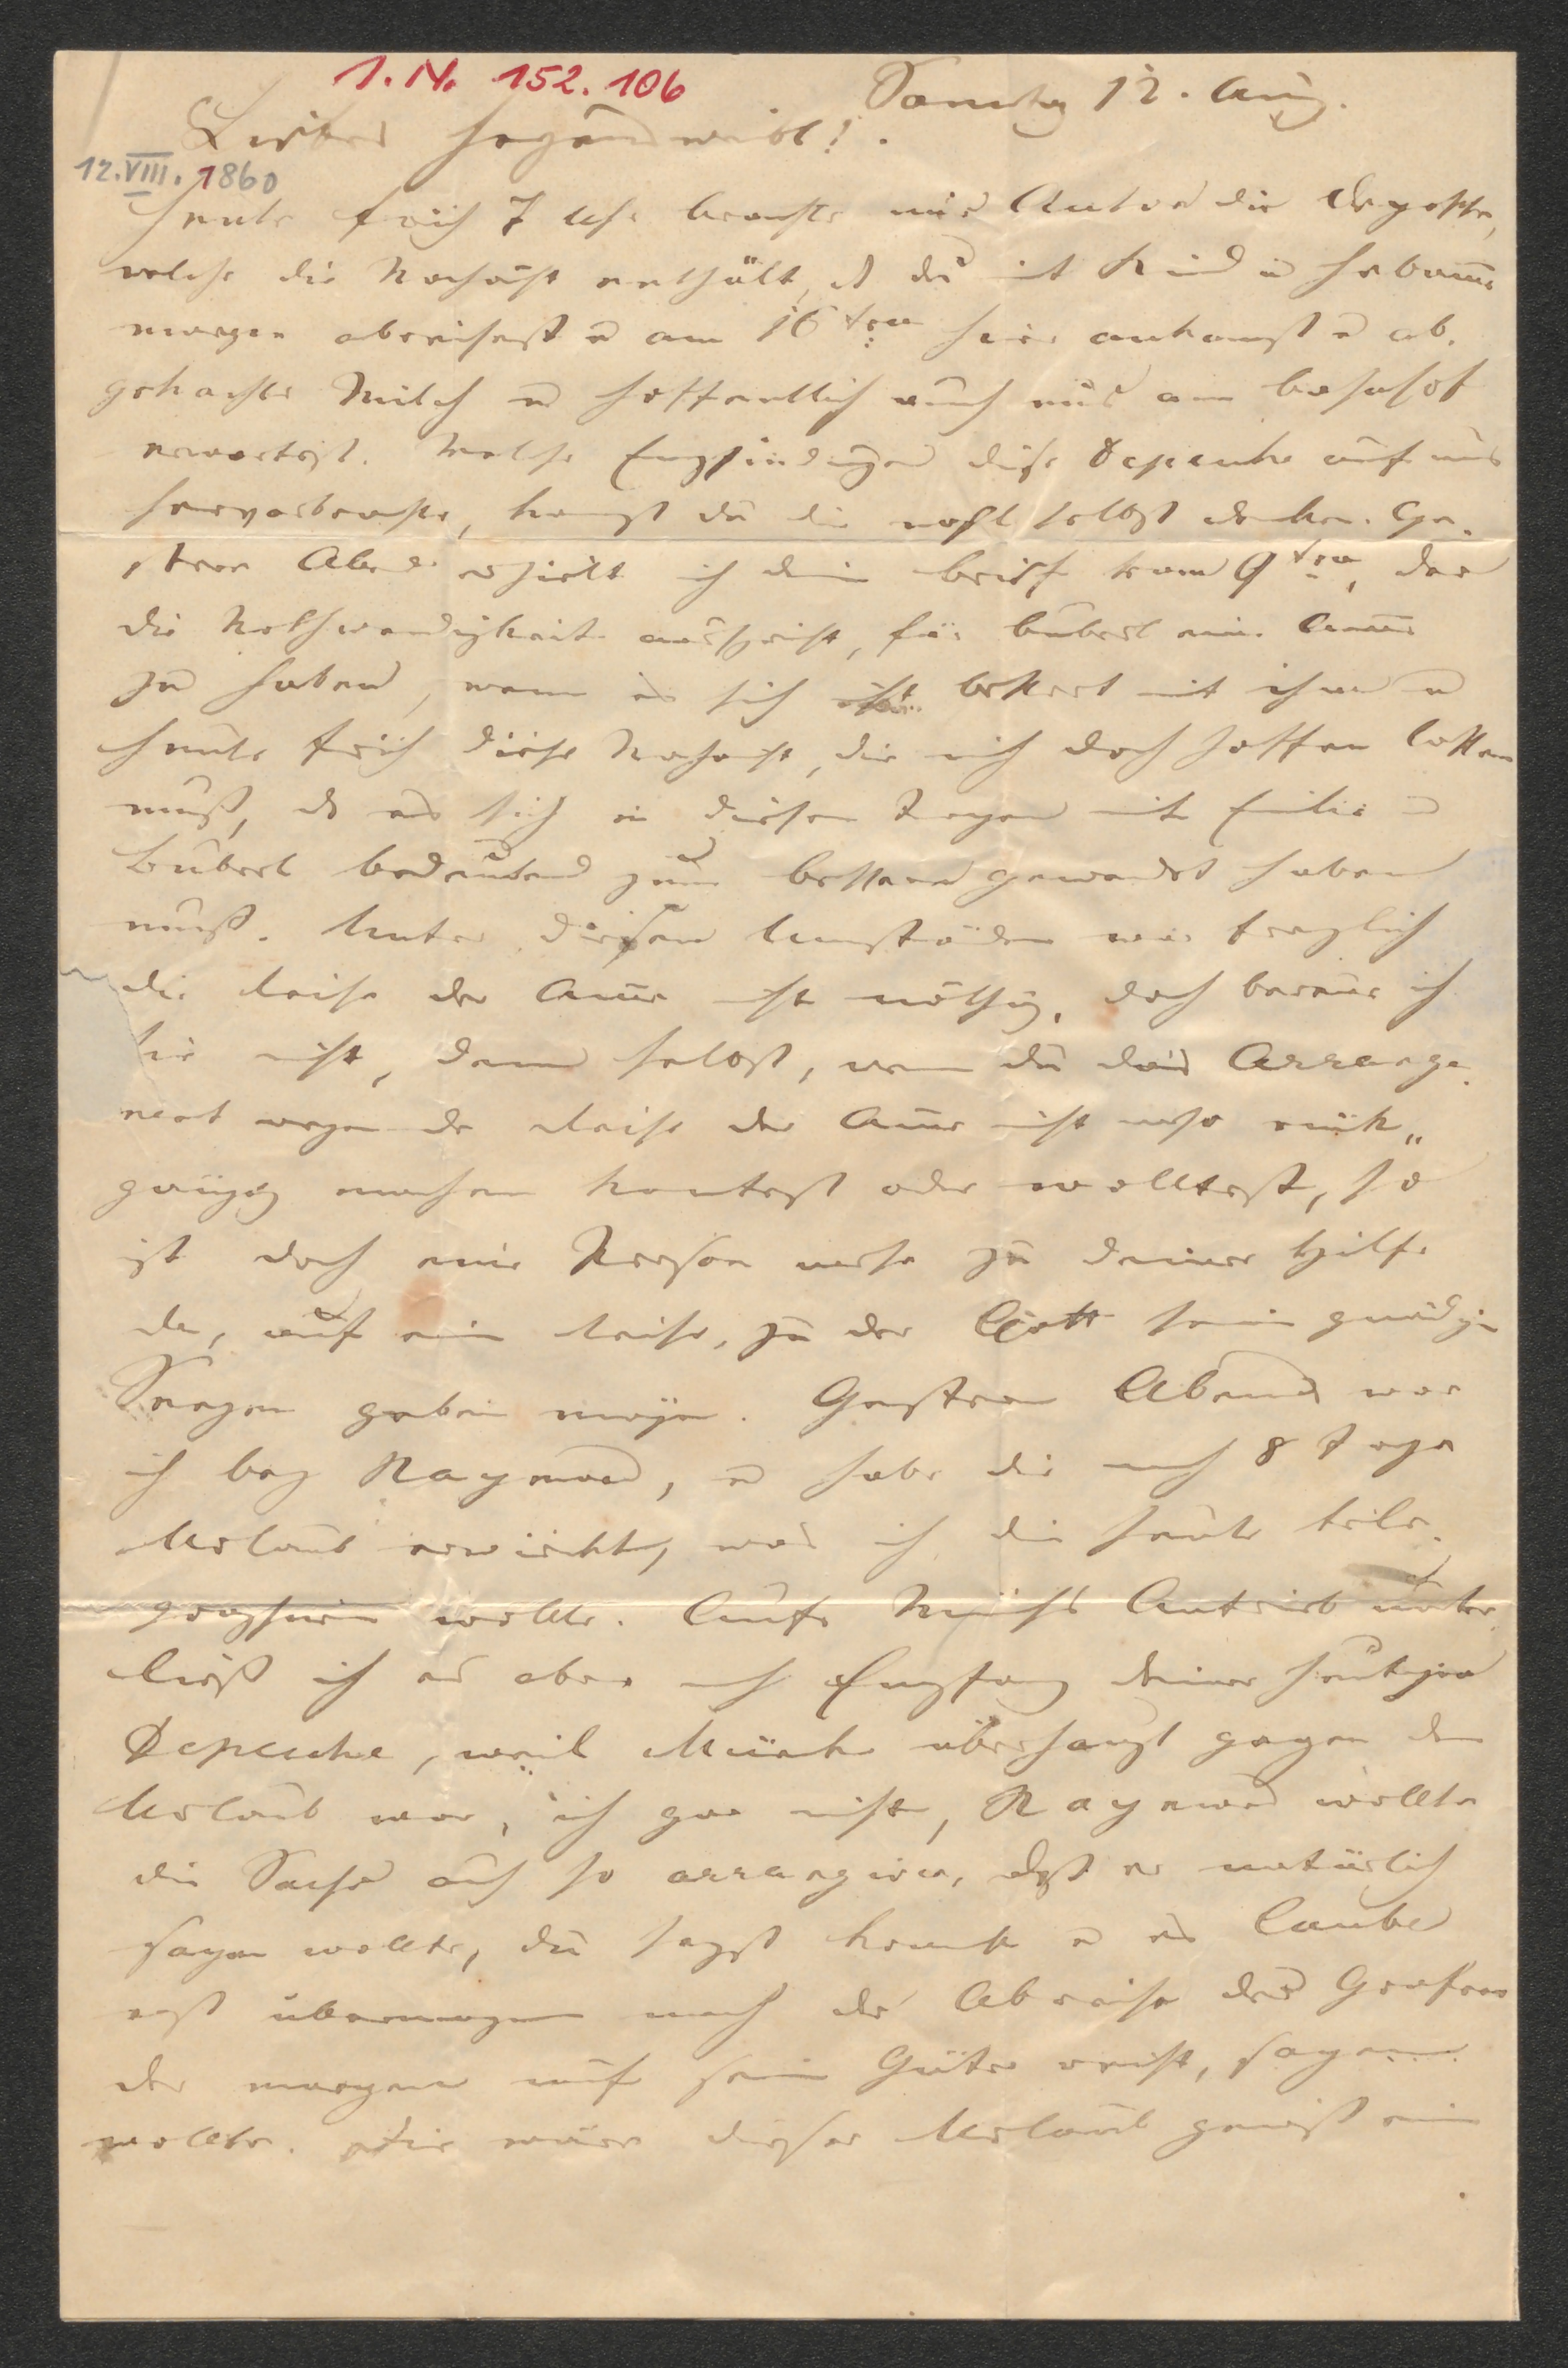 I. N. 152.106
Sonntag 12. Aug.
Liebes Herzensweibl!
12.VIII.1860
Heute früh 7 Uhr brachte mir Anton die Depesche,
welche die Nachricht enthält, dß du mit Kind u Hebamme
morgen abreisest u am 16ten hier ankommst u ab-
gekochte Milch u hoffentlich auch mich am Bahnhof
erwartest. Welche Empfindungen diese Depesche auf mich
hervorbrachte, kannst du dir wohl selbst denken. Ge-
stern Abend erhielt ich dein Brief vom 9ten, der
die Nothwendigkeit ausspricht, für Buberl eine Amme
zu haben, wenn es sich nicht bessert mit ihm u
heute früh diese Nachricht, die mich doch hoffen lassen
muß, dß es sich in diesen Tagen mit Emilie u
Buberl bedeutend zum bessern gewendet haben
muß. Unter diesen Umständen war fraglich
die Reise der Amme nicht nöthig, doch bereue ich
sie nicht, denn selbst, wenn du das Arrange-
ment wegen der Reise der Amme nicht mehr rück-
gängig machen konntest oder wolltest, so
ist doch eine Person mehr zu deiner Hilfe
da, auf ein Reise, zu der Gott sein gnädigen
Seegen geben möge. Gestern Abend war
ich bey Raymond, u habe dir noch 8 Tage
Urlaub erwirkt, was ich dir heute tele-
graphiren wollte. Aufs Antrieb unter-
ließ ich es aber nach Empfang deiner heutigen
Depesche, weil überhaupt gegen den
Urlaub war, ich gar nicht, Raymond wollte
die Sache auch so arrangiren, daß er natürlich
sagen wollte, du seyst krank u es Laube
erst übermorgen nach der Abreise des Grafen
der morgen auf sein Güter reist, sagen
wollte. Dir wäre dieser Urlaub gewiß ein